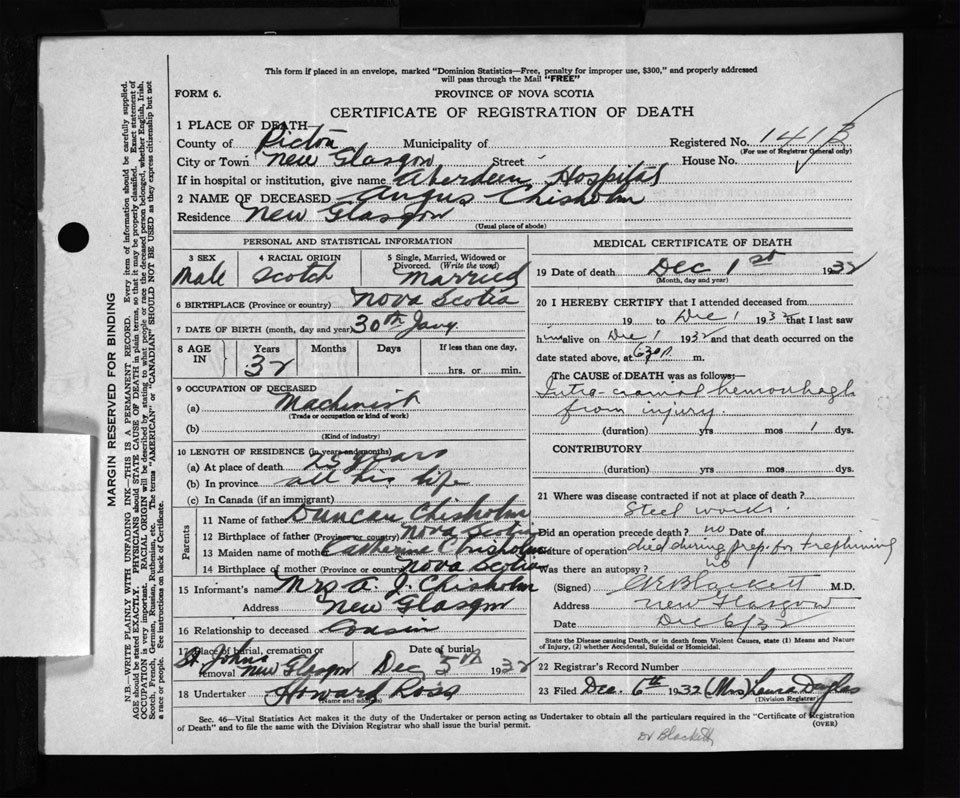 This form if placed in an envelope, marked "Dominion Statistics—Free, penalty for improper use, $300," and properly addressed
will pass through the Mail "FREE"
FORM 6.
PROVINCE OF NOVA SCOTIA
CERTIFICATE OF REGISTRATION OF DEATH
1 PLACE OF DEATH
County of Pictou Municipality of Registered No. 141B
(For use of Registrar General only)
City or Town New Glasgow Street House No.
If in hospital or institution, give name Aberdeen Hospital
2 NAME OF DECEASED Angus Chisholm
Residence New Glasgow
(Usual place of abode)
PERSONAL AND STATISTICAL INFORMATION
3 SEX 4 RACIAL ORIGIN 5 Single, Married, Widowed or
Divorced. (Write the word)
Male Scotch Married
6 BIRTHPLACE (Province or country) Nova Scotia
7 DATE OF BIRTH (month, day and year) 30th Jany.
8 AGE IN Years Months Days If less than one day,
32 hrs. or min.
9 OCCUPATION OF DECEASED
(a) Machinist
(Trade or occupation or kind of work)
(b)
(Kind of industry)
10 LENGTH OF RESIDENCE (in years and months)
(a) At place of death 25 years
(b) In province all his life
(c) In Canada (if an immigrant)
Parents
11 Name of father Duncan Chisholm
12 Birthplace of father (Province or country) Nova Scotia
13 Maiden name of mother Catherine Chisholm
14 Birthplace of mother (Province or country) Nova Scotia
15 Informant's name Mrs A. J. Chisholm
Address New Glasgow
16 Relationship to deceased Cousin
17 Place of burial, cremation or removal Date of burial
St Johns New Glasgow Dec 5th 1932
18 Undertaker Howard Ross
(Name and address)
MEDICAL CERTIFICATE OF DEATH
19 Date of death Dec 1st 1932
(Month, day and year)
20 I HEREBY CERTIFY that I attended deceased from
19 to Dec 1 1932 that I last saw
him alive on Dec 1 1932 and that death occurred on the
date stated above, at m.
The CAUSE OF DEATH was as follows:—
Intra-cranial hemorrhage
from injury.
(duration) yrs mos 1 dys.
CONTRIBUTORY
(duration) yrs mos dys.
21 Where was disease contracted if not at place of death?
Steel works.
Did an operation precede death? no Date of
Nature of operation died during prep. for trephining
Was there an autopsy? no
(Signed) Blackett M.D.
Address New Glasgow
Date Dec 6/32
State the Disease causing Death, or in death from Violent Causes, state (1) Means and Nature
of Injury, (2) whether Accidental, Suicidal or Homicidal.
22 Registrar's Record Number
23 Filed Dec. 6th 1932 (Mrs) Laura Douglas
(Division Registrar)
Sec. 46—Vital Statistics Act makes it the duty of the Undertaker or person acting as Undertaker to obtain all the particulars required in the "Certificate of Registration
of Death" and to file the same with the Division Registrar who shall issue the burial permit.
(OVER)
Dr Blackett
MARGIN RESERVED FOR BINDING
N.B.—WRITE PLAINLY WITH UNFADING INK—THIS IS A PERMANENT RECORD. Every item of information should be carefully supplied.
AGE should be stated EXACTLY. PHYSICIANS should STATE CAUSE OF DEATH in plain terms, so that it may be properly classified. Exact statement of
OCCUPATION is very important. RACIAL ORIGIN will be described by stating to what people or race the deceased person belonged, whether English, Irish,
Scotch, French, German, Russian, Ruthenian, etc. The terms "AMERICAN" or "CANADIAN" SHOULD NOT BE USED as they express citizenship but not
a race or people. See instructions on back of Certificate.